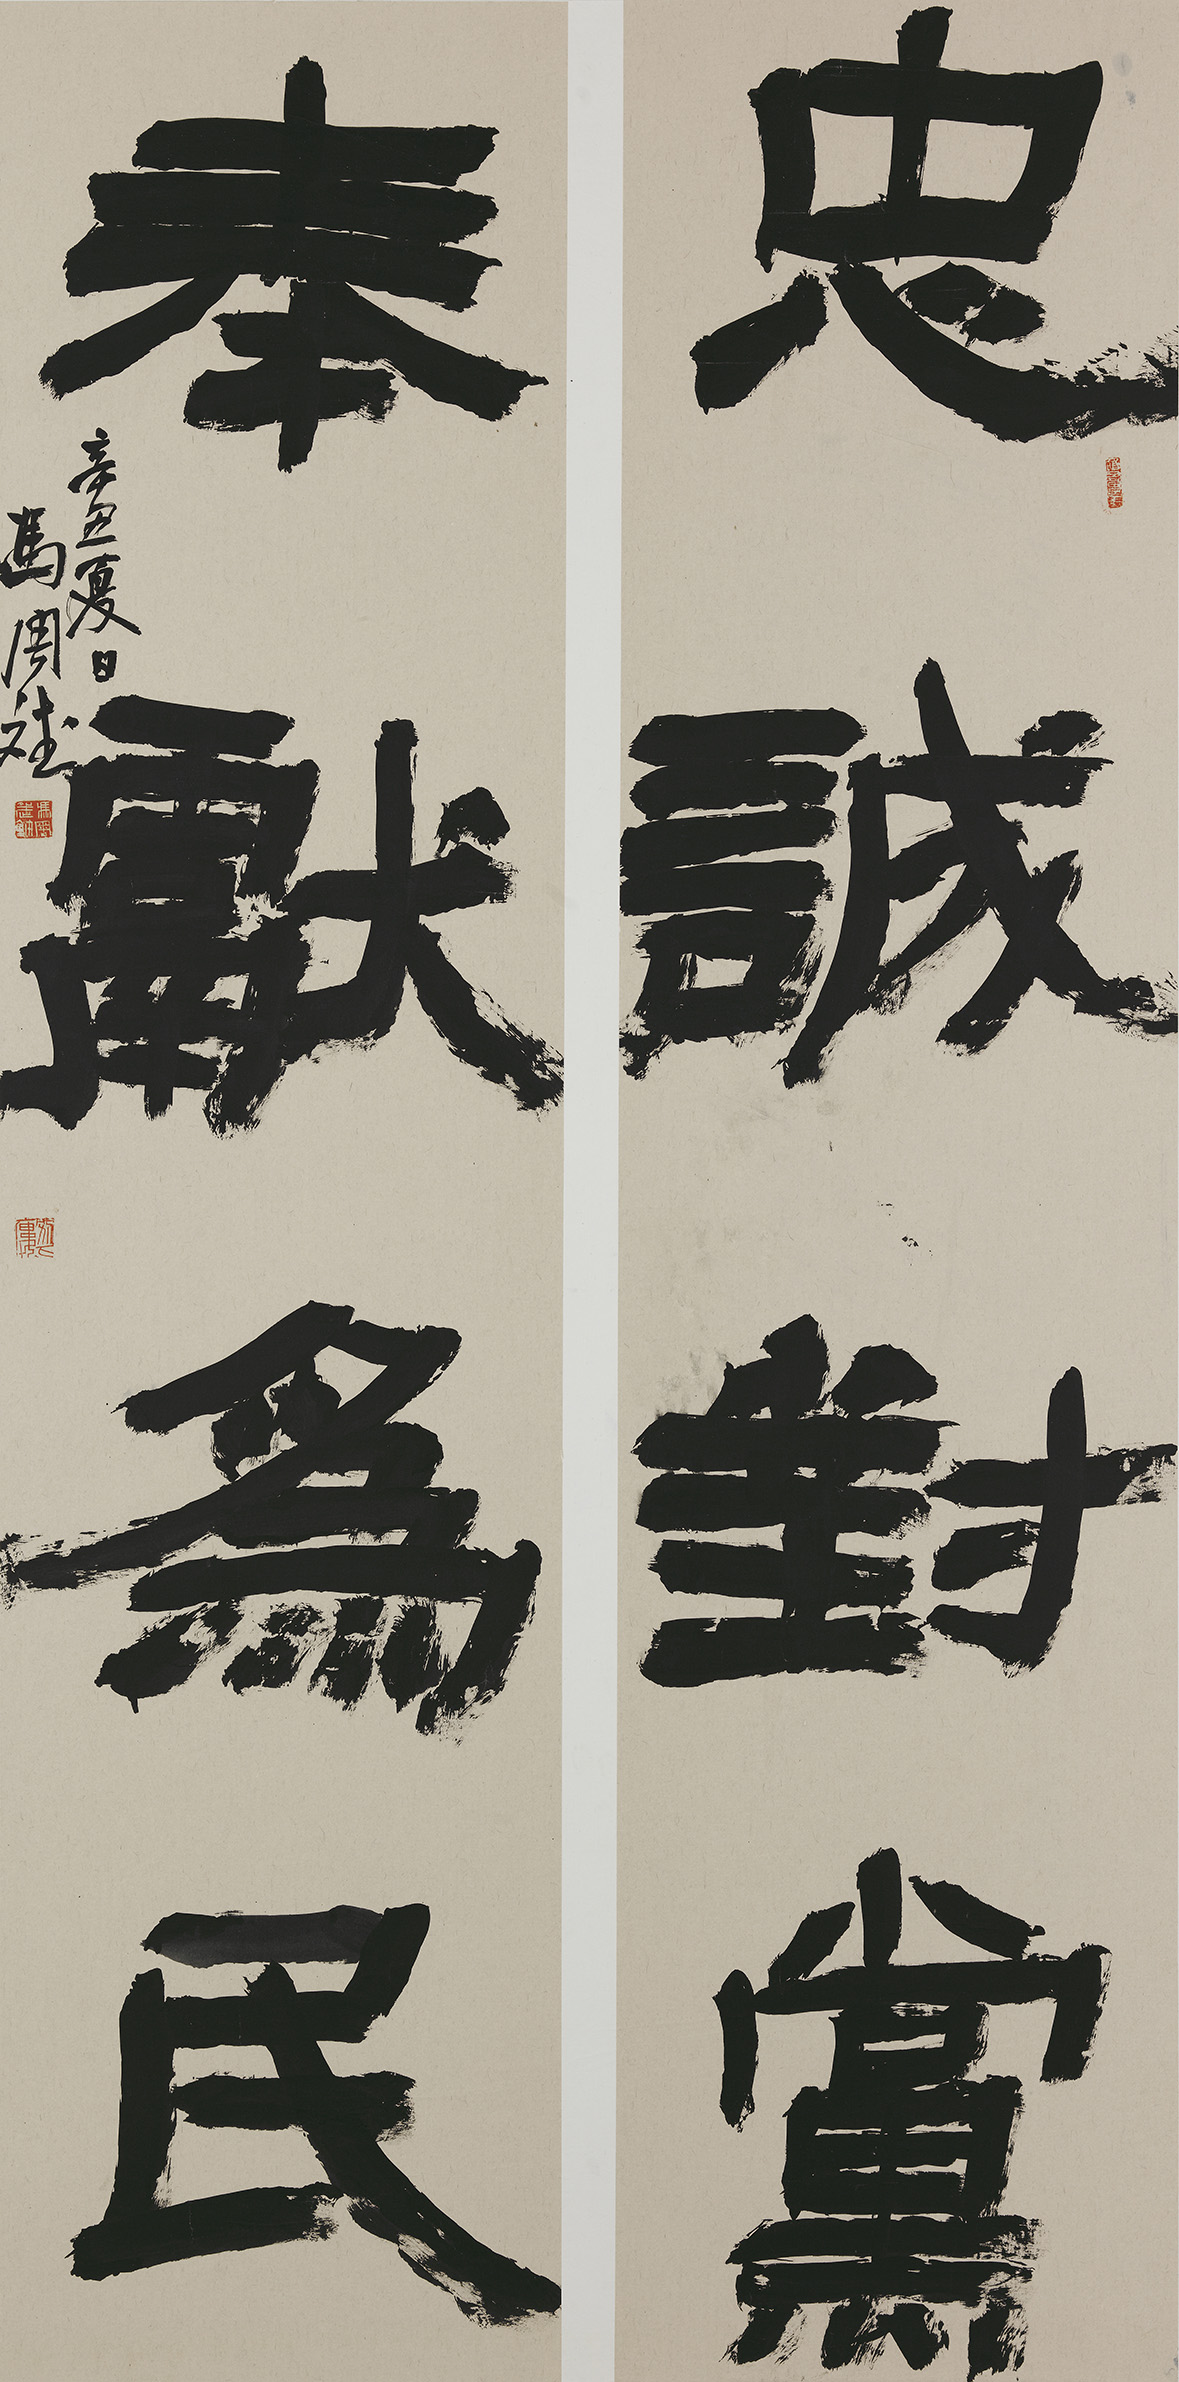 忠誠對黨
奉獻為民
辛丑夏日
馮周斌